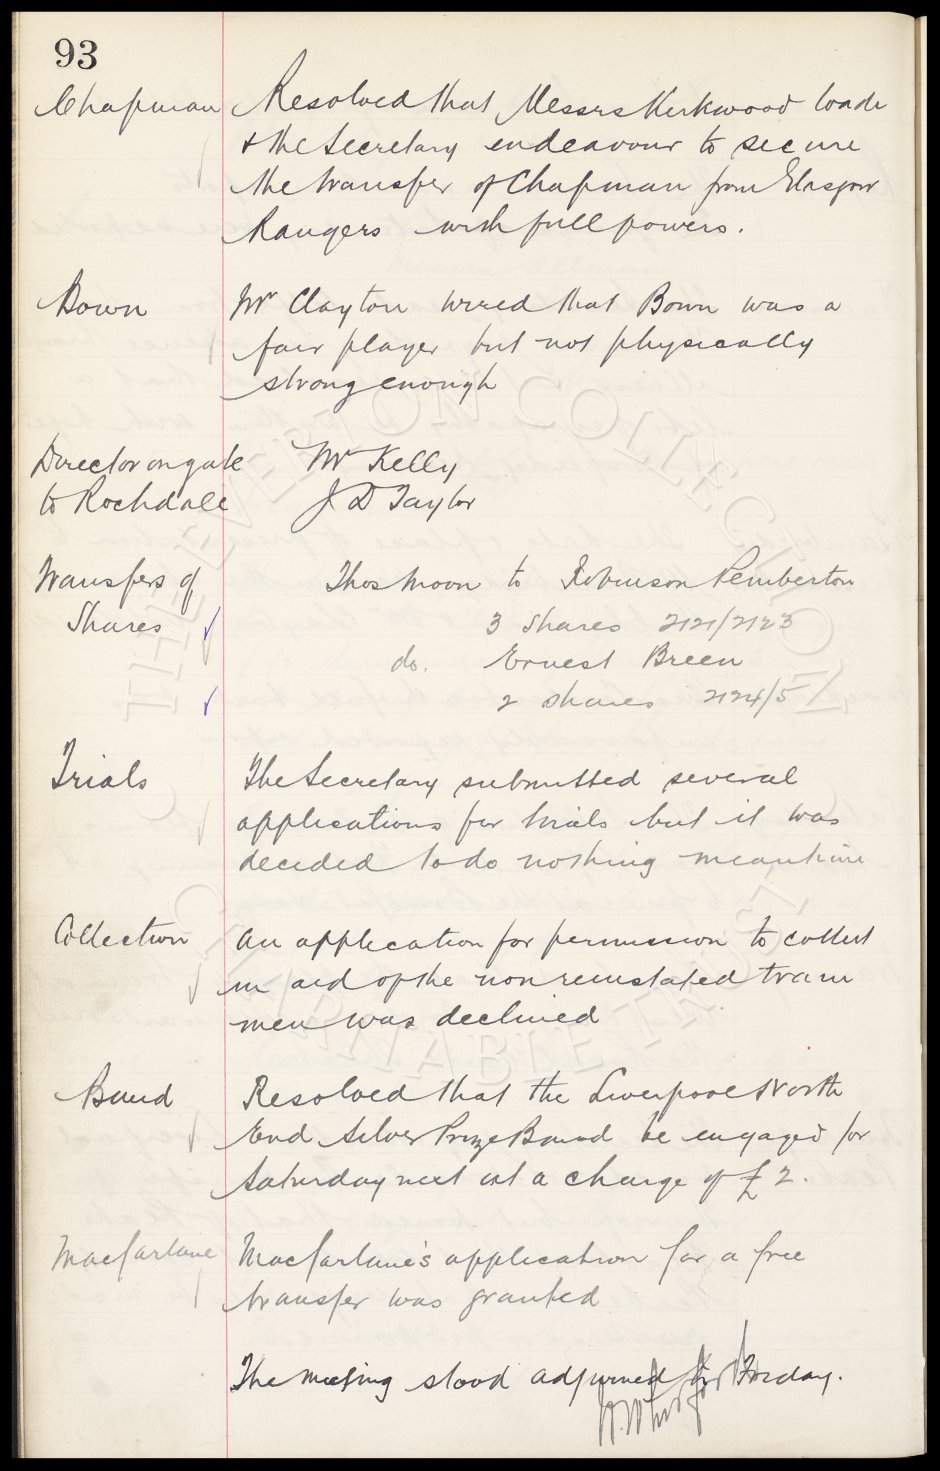 93
Chapman Resolved that Messrs Kirkwood Coade
& the Secretary endeavour to secure
the transfer of Chapman from Glasgow
Rangers with full powers.
Bown Mr Clayton wired that Bown was a
fair player but not physically
strong enough
Director on gate Mr Kelly
to Rochdale J D Taylor
Transfers of Thos Moon to Robinson Pemberton
Shares 3 shares 2121/2123
do. Ernest Breen
2 shares 2124/5
Trials The Secretary submitted several
applications for trials but it was
decided to do nothing meantime
Collection An application for permission to collect
in aid of the non reinstated tram
men was declined
Band Resolved that the Liverpool North
End Silver Prize Band be engaged for
Saturday next at a charge of £2.
Macfarlane Macfarlane's application for a free
transfer was granted
The meeting stood adjourned to Friday.
THE EVERTON COLLECTION
CHARITABLE TRUST